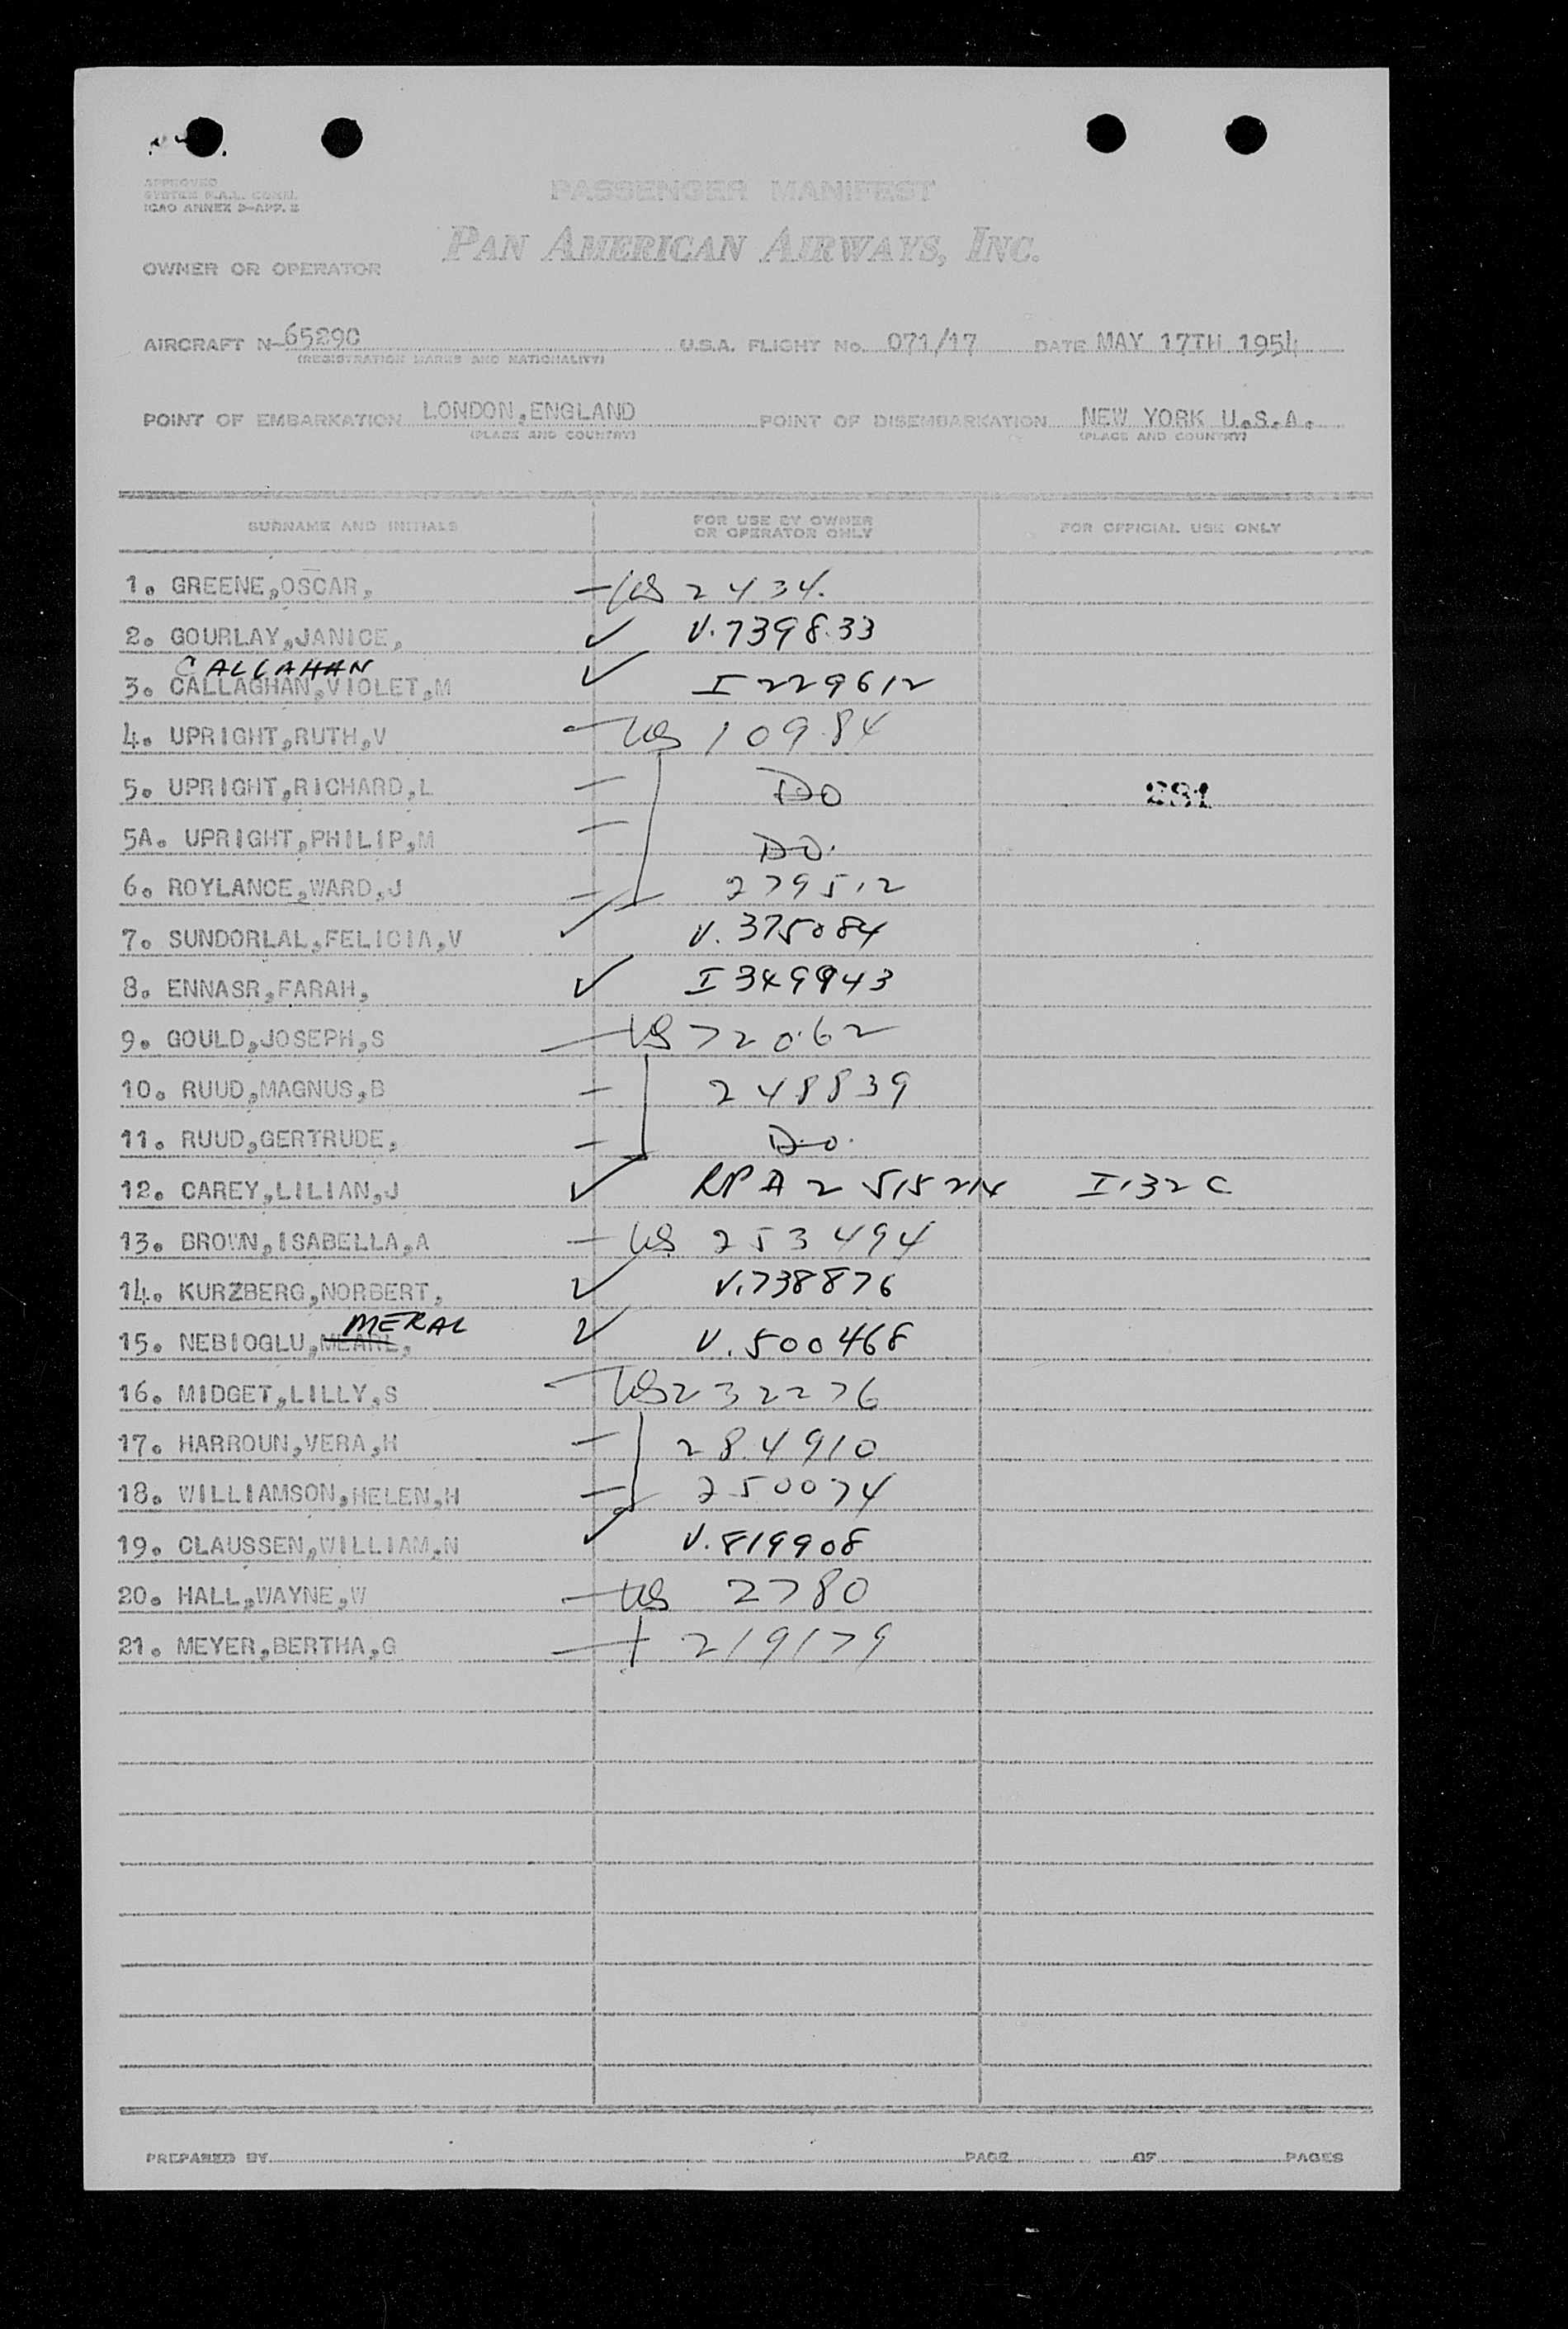 APPROVED
SYSTEM F.A.L. COMM.
ICAO ANNEX 9-APP. 2
PASSENGER MANIFEST
PAN AMERICAN AIRWAYS, INC.
OWNER OR OPERATOR
AIRCRAFT N-65290 U.S.A. FLIGHT No. 071/17 DATE MAY 17TH 1954
(REGISTRATION MARKS AND NATIONALITY)
POINT OF EMBARKATION LONDON,ENGLAND POINT OF DISEMBARKATION NEW YORK U.S.A.
(PLACE AND COUNTRY) (PLACE AND COUNTRY)
SURNAME AND INITIALS FOR USE BY OWNER OR OPERATOR ONLY FOR OFFICIAL USE ONLY
1. GREENE,OSCAR, US 2434.
2. GOURLAY,JANICE, ✓ V.739833
CALLAHAN
3. CALLAGHAN,VIOLET,M ✓ I 229612
4. UPRIGHT,RUTH,V US 10984
5. UPRIGHT,RICHARD,L DO 291
5A. UPRIGHT,PHILIP,M DO.
6. ROYLANCE,WARD,J 279512
7. SUNDORLAL,FELICIA,V ✓ V.375084
8. ENNASR,FARAH, ✓ I 349943
9. GOULD,JOSEPH,S US 72062
10. RUUD,MAGNUS,B 248839
11. RUUD,GERTRUDE, Do.
12. CAREY,LILIAN,J ✓ RPA 2 515214 I.132 C
13. BROWN,ISABELLA,A US 253494
14. KURZBERG,NORBERT, ✓ V.738876
MERAL
15. NEBIOGLU,MEARL, ✓ V.500468
16. MIDGET,LILLY,S US 232276
17. HARROUN,VERA,H 284910
18. WILLIAMSON,HELEN,H 250074
19. CLAUSSEN,WILLIAM,N ✓ V.819908
20. HALL,WAYNE,W US 2780
21. MEYER,BERTHA,G 219179
PREPARED BY PAGE OF PAGES